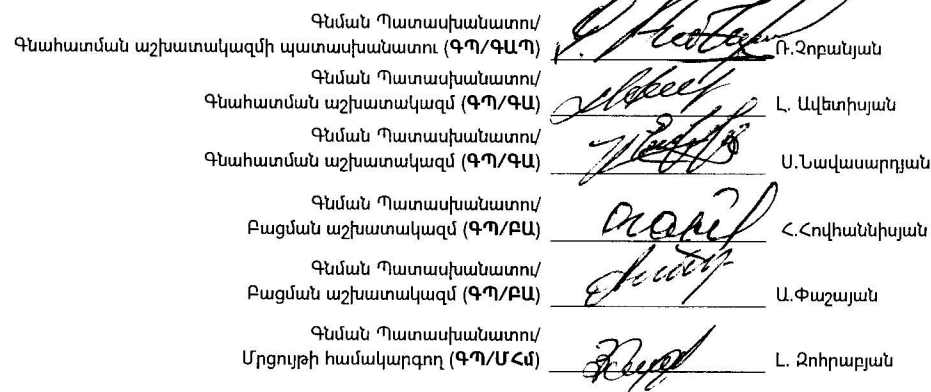 Գնման Պատասխանատու/
Գնահատման աշխատակազմի պատասխանատու (ԳՊ/ԳԱՊ) Ռ.Չոբանյան
Գնման Պատասխանատու/
Գնահատման աշխատակազմ (ԳՊ/ԳԱ) Լ. Ավետիսյան
Գնման Պատասխանատու/
Գնահատման աշխատակազմ (ԳՊ/ԳԱ) Ս.Նավասարդյան
Գնման Պատասխանատու/
Բացման աշխատակազմ (ԳՊ/ԲԱ) Հ.Հովհաննիսյան
Գնման Պատասխանատու/
Բացման աշխատակազմ (ԳՊ/ԲԱ) Ա.Փաշայան
Գնման Պատասխանատու/
Մրցույթի համակարգող (ԳՊ/ՄՀմ) Լ. Զոհրաբյան